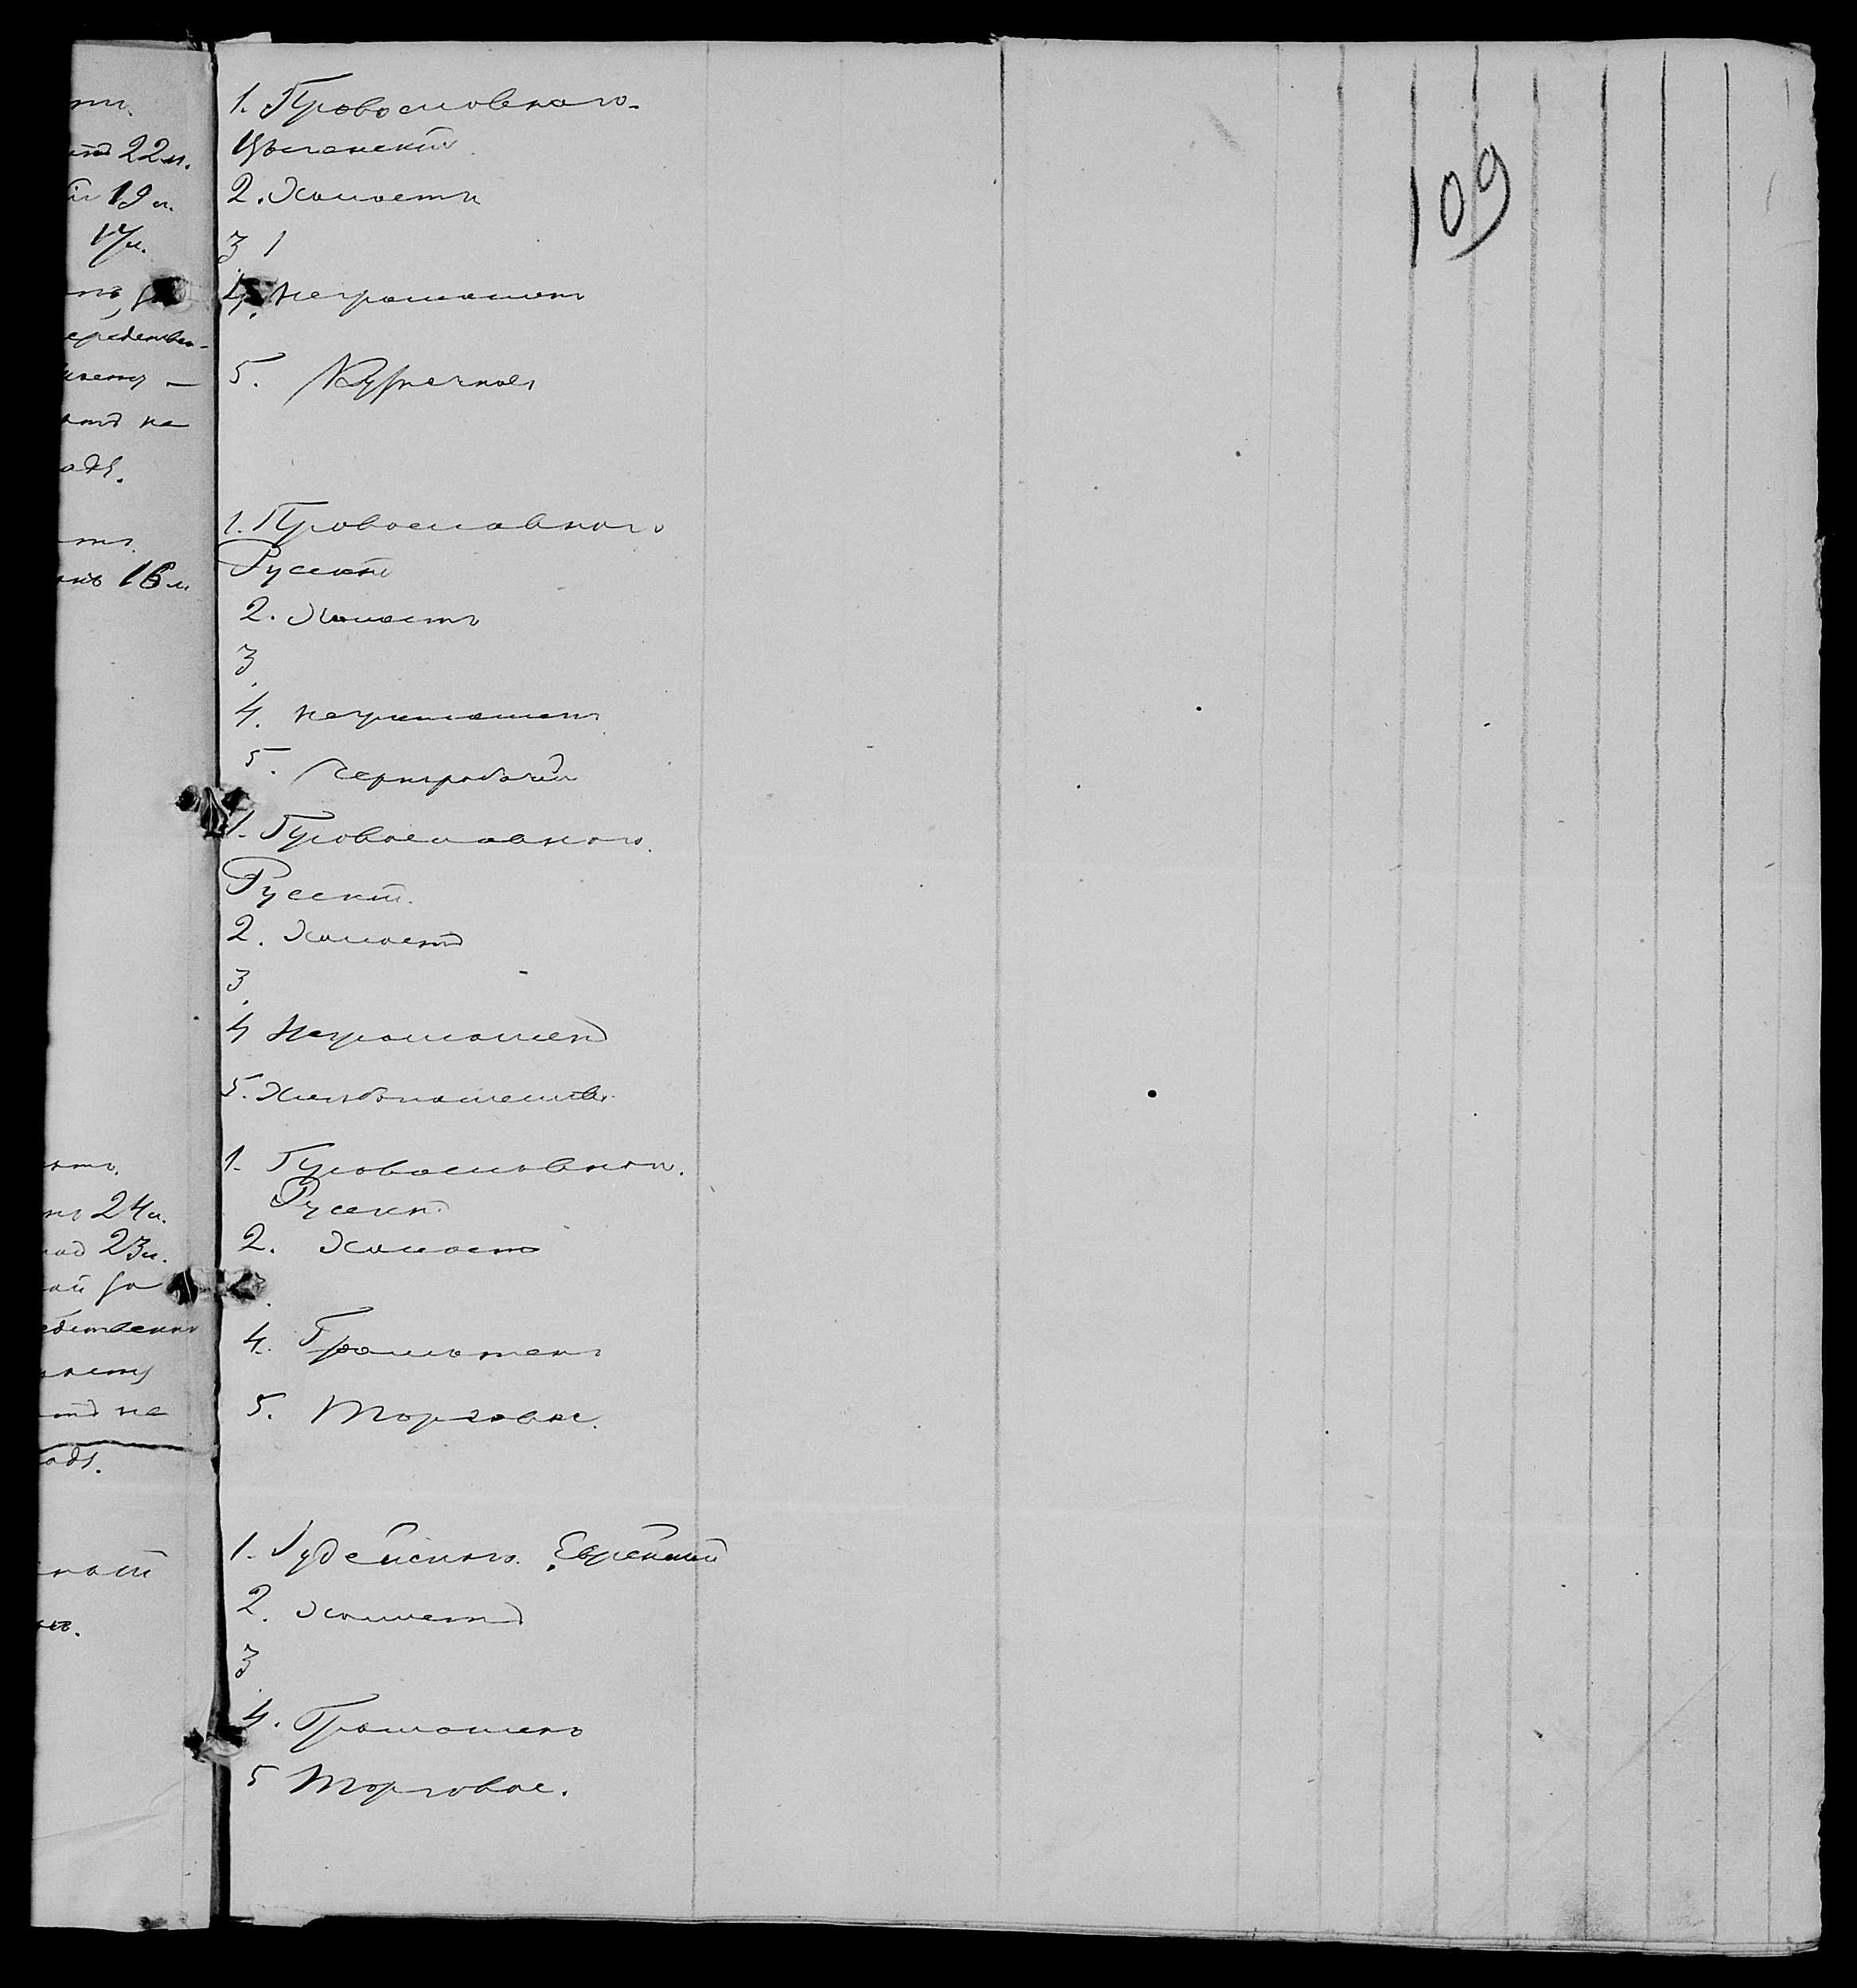 109
22 л.
19 л.
17 л.
на
16 л.
24 л.
23 л.
за
на
1. Православного
Цыганский
2. Холостъ
3 1
4. неграмотенъ
5. Кузнечное
1. Православного
Русский
2. Холостъ
3.
4. неграмотенъ
5. Чернорабочий
1. Православного.
Русский.
2. Холостъ
3.
4 Неграмотенъ
5. Хлебопашество
1. Православного.
Русский
2. Холостъ
4. Грамотенъ
5. Торговое.
1. Иудейского. Еврейский
2. Холостъ
3.
4. Грамотенъ
5 Торговое.